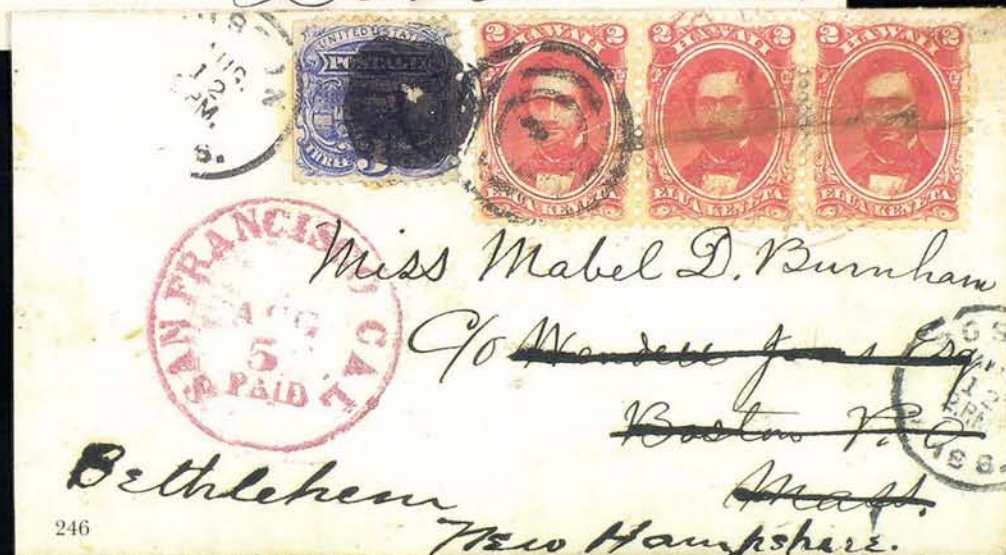 UNITED STATES
POSTAGE
THREE
2 HAWAII 2
ELUA KENETA
2 HAWAII 2
ELUA KENETA
2 HAWAII 2
ELUA KENETA
12
PM.
SAN FRANCISCO CAL
AUG
5
PAID
Miss Mabel D. Burnham
C/o Wendell Esq
Boston P.O.
Mass.
Bethlehem
New Hampshire.
246